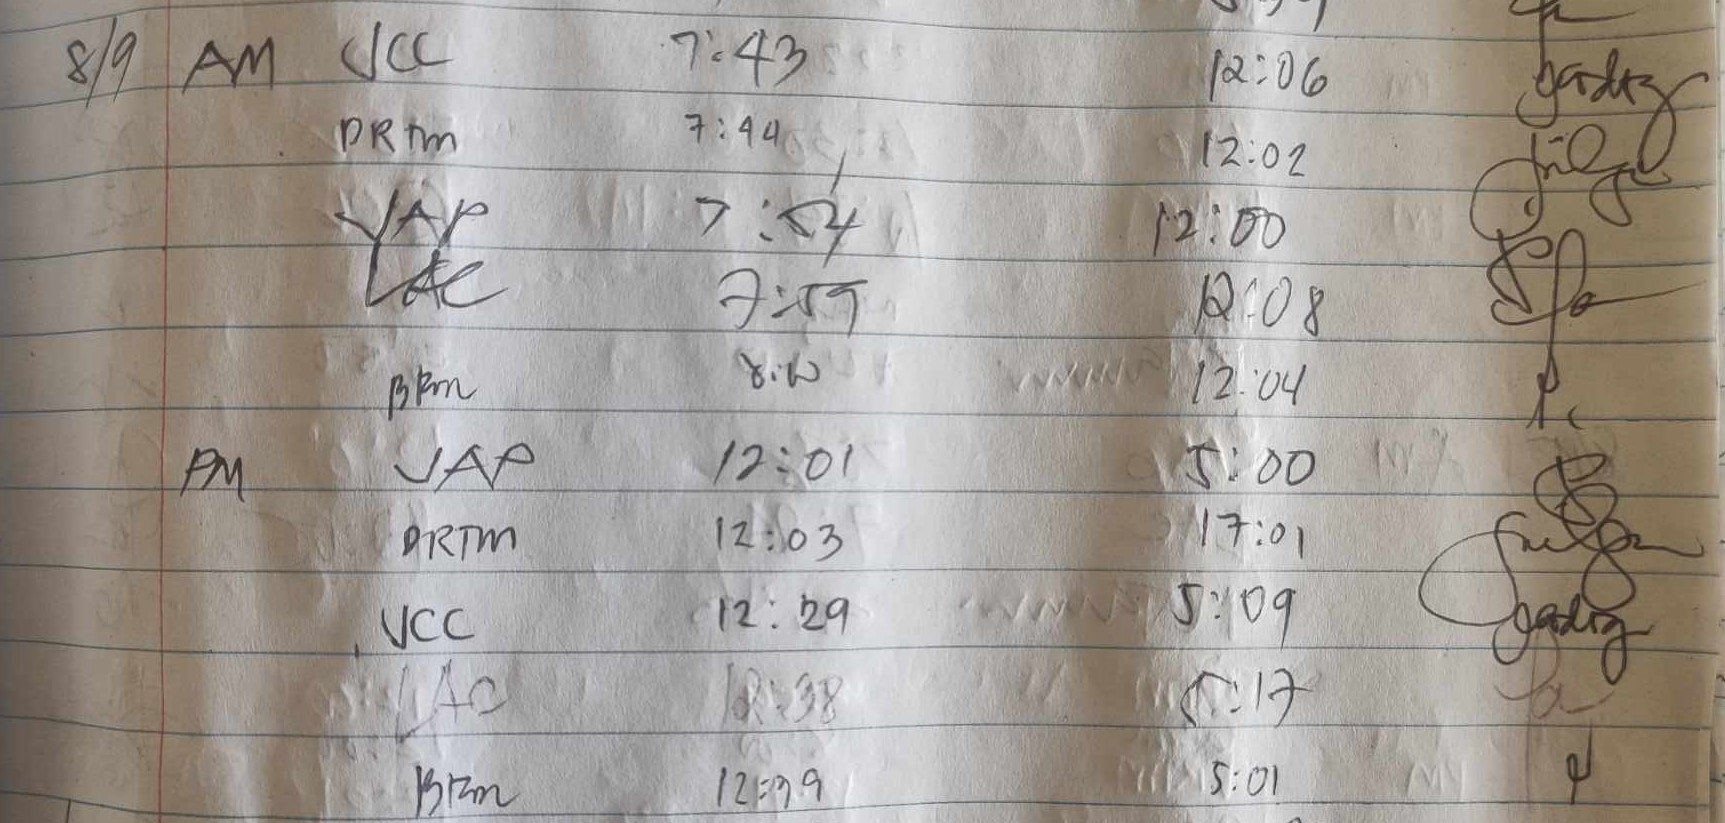 8/9 AM VCC 7:43 12:06
DRTM 7:44 12:02
VAP 7:54 12:00
LAC 7:59 12:08
BRM 12:04
PM VAP 12:01 5:00
DRTM 12:03 17:01
VCC 12:29 5:09
LAC 12:38 5:17
BRM 12:39 5:01